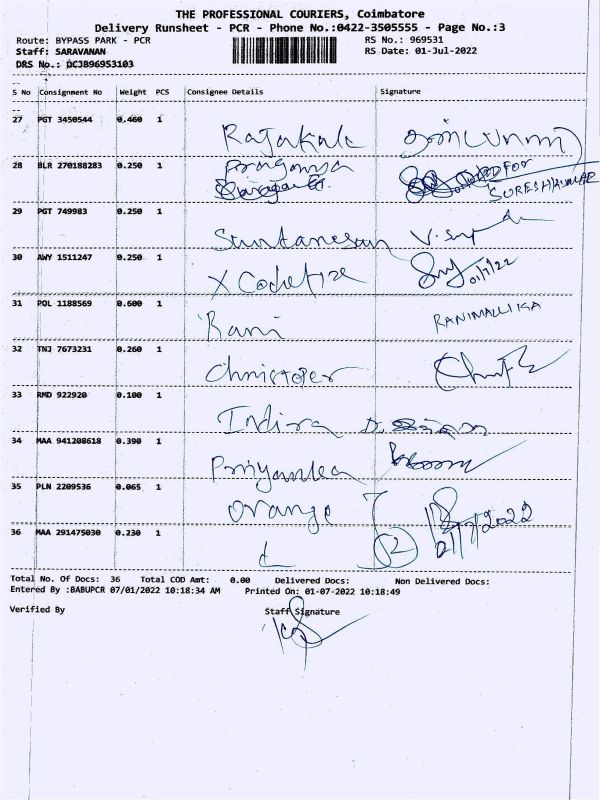 THE PROFESSIONAL COURIERS, Coimbatore
Delivery Runsheet - PCR - Phone No.:0422-3505555 - Page No.:3
Route: BYPASS PARK - PCR RS No.: 969531
Staff: SARAVANAN RS Date: 01-Jul-2022
DRS No.: DCJB96953103
S No Consignment No Weight PCS Consignee Details Signature
27 PGT 3450544 0.460 1 Rajakala
28 BLR 270188283 0.250 1 Praganya FOR SURESHKUMAR
29 PGT 749983 0.250 1
30 AWY 1511247 0.250 1 X Codetize 01/7/22
31 POL 1188569 0.600 1 Rani RANIMALLIKA
32 TNJ 7673231 0.260 1 Christoper
33 RMD 922920 0.100 1 Indira
34 MAA 941208618 0.390 1 Priyanka
35 PLN 2209536 0.065 1 Orange
36 MAA 291475030 0.230 1 2
Total No. Of Docs: 36 Total COD Amt: 0.00 Delivered Docs: Non Delivered Docs:
Entered By :BABUPCR 07/01/2022 10:18:34 AM Printed On: 01-07-2022 10:18:49
Verified By Staff Signature